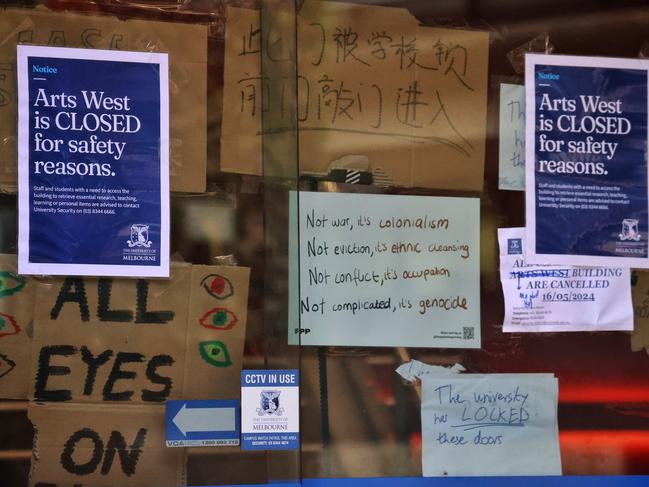 Notice
Arts West
is CLOSED
for safety
reasons.
Staff and students with a need to access the
building to retrieve essential research, teaching,
learning or personal items are advised to contact
University Security on (03) 8344 6666.
THE UNIVERSITY OF
MELBOURNE
此门被学校锁
前门敲门进入
Notice
Arts West
is CLOSED
for safety
reasons.
Staff and students with a need to access the
building to retrieve essential research, teaching,
learning or personal items are advised to contact
University Security on (03) 8344 6666.
THE UNIVERSITY OF
MELBOURNE
Not war, it's colonialism
Not eviction, it's ethnic cleansing
Not conflict, it's occupation
Not complicated, it's genocide
FPP
ARTS WEST BUILDING
ARE CANCELLED
16/05/2024
ALL
EYES
ON
CCTV IN USE
THE UNIVERSITY OF
MELBOURNE
VDA
1300 693 793
The university
has LOCKED
these doors